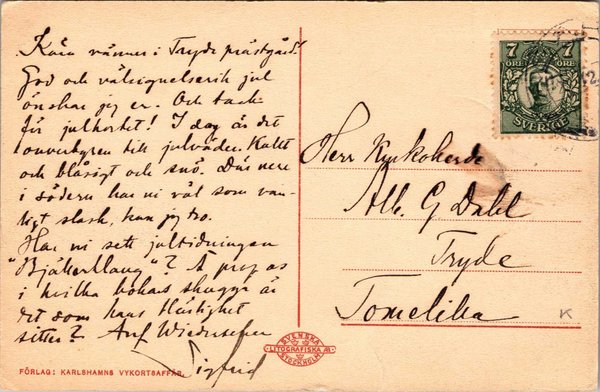 Kära vänner i Tryde prästgård!
God och välsignelserik jul
önskar jag er. Och tack
för julkortet! I dag är det
till julväder. Kallt
och blåsigt och snö. Där nere
i södern har ni väl som van-
ligt slask, kan jag tro.
Har ni sett jultidningen
"Bjällerklang"? À propos
i hvilka bokars skugga är
det som hans
sitter? Auf Wiedersehen
Sigfrid
FÖRLAG: KARLSHAMNS VYKORTSAFFÄR.
SVENSKA
LITOGRAFISKA AB.
STOCKHOLM
7 7
ÖRE ÖRE
SVERIGE
Herr Kyrkoherde
Alb. G Dahl
Tryde
Tomelilla
K